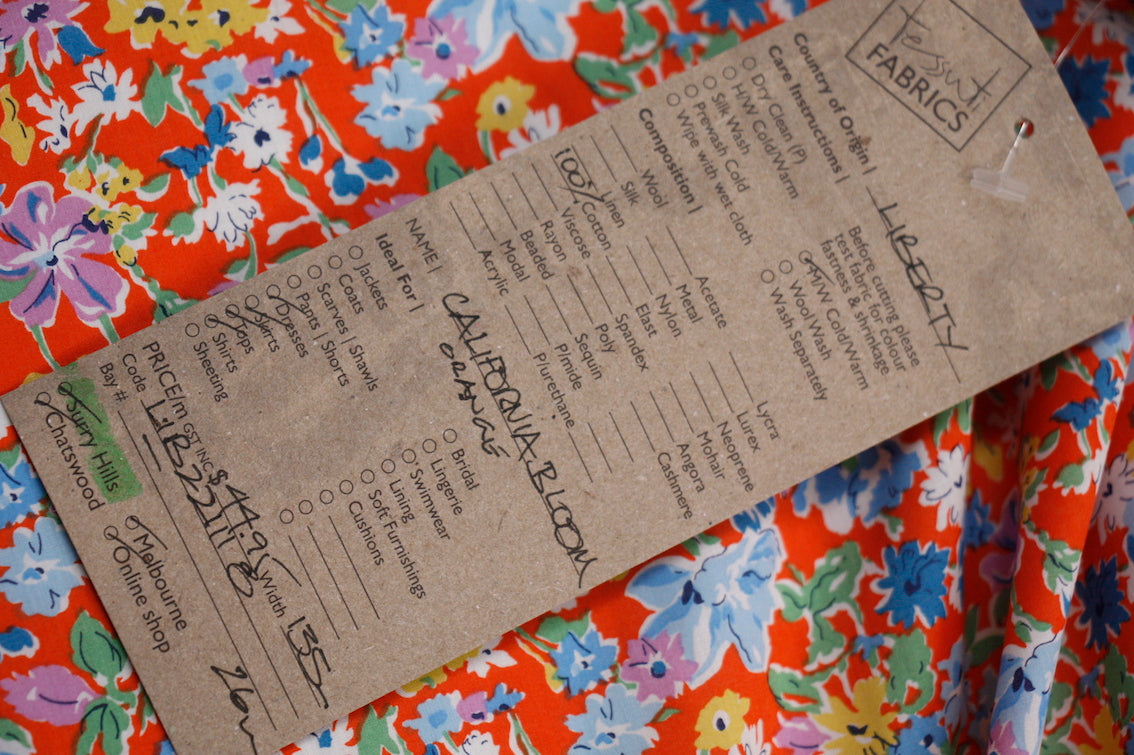 Tessuti
FABRICS
Country of Origin | LIBERTY
Care Instructions |
Dry Clean (P)
H/W Cold/Warm
Silk Wash
Prewash Cold
Wipe with wet cloth
Before cutting please
test fabric for colour
fastness & shrinkage
M/W Cold/Warm
Wool Wash
Wash Separately
Composition |
Wool
Silk
Linen
100% Cotton
Viscose
Rayon
Beaded
Modal
Acrylic
Acetate
Metal
Nylon
Elast
Spandex
Poly
Sequin
P/mide
P/urethane
Lycra
Lurex
Neoprene
Mohair
Angora
Cashmere
NAME | CALIFORNIA BLOOM
ORANGE
Ideal For |
Jackets
Coats
Scarves | Shawls
Pants | Shorts
Dresses
Skirts
Tops
Shirts
Sheeting
Bridal
Lingerie
Swimwear
Lining
Soft Furnishings
Cushions
PRICE/m GST INC $44.95 Width 135
Code LIB22111 8
Bay #
Surry Hills
Chatswood
Melbourne
Online shop